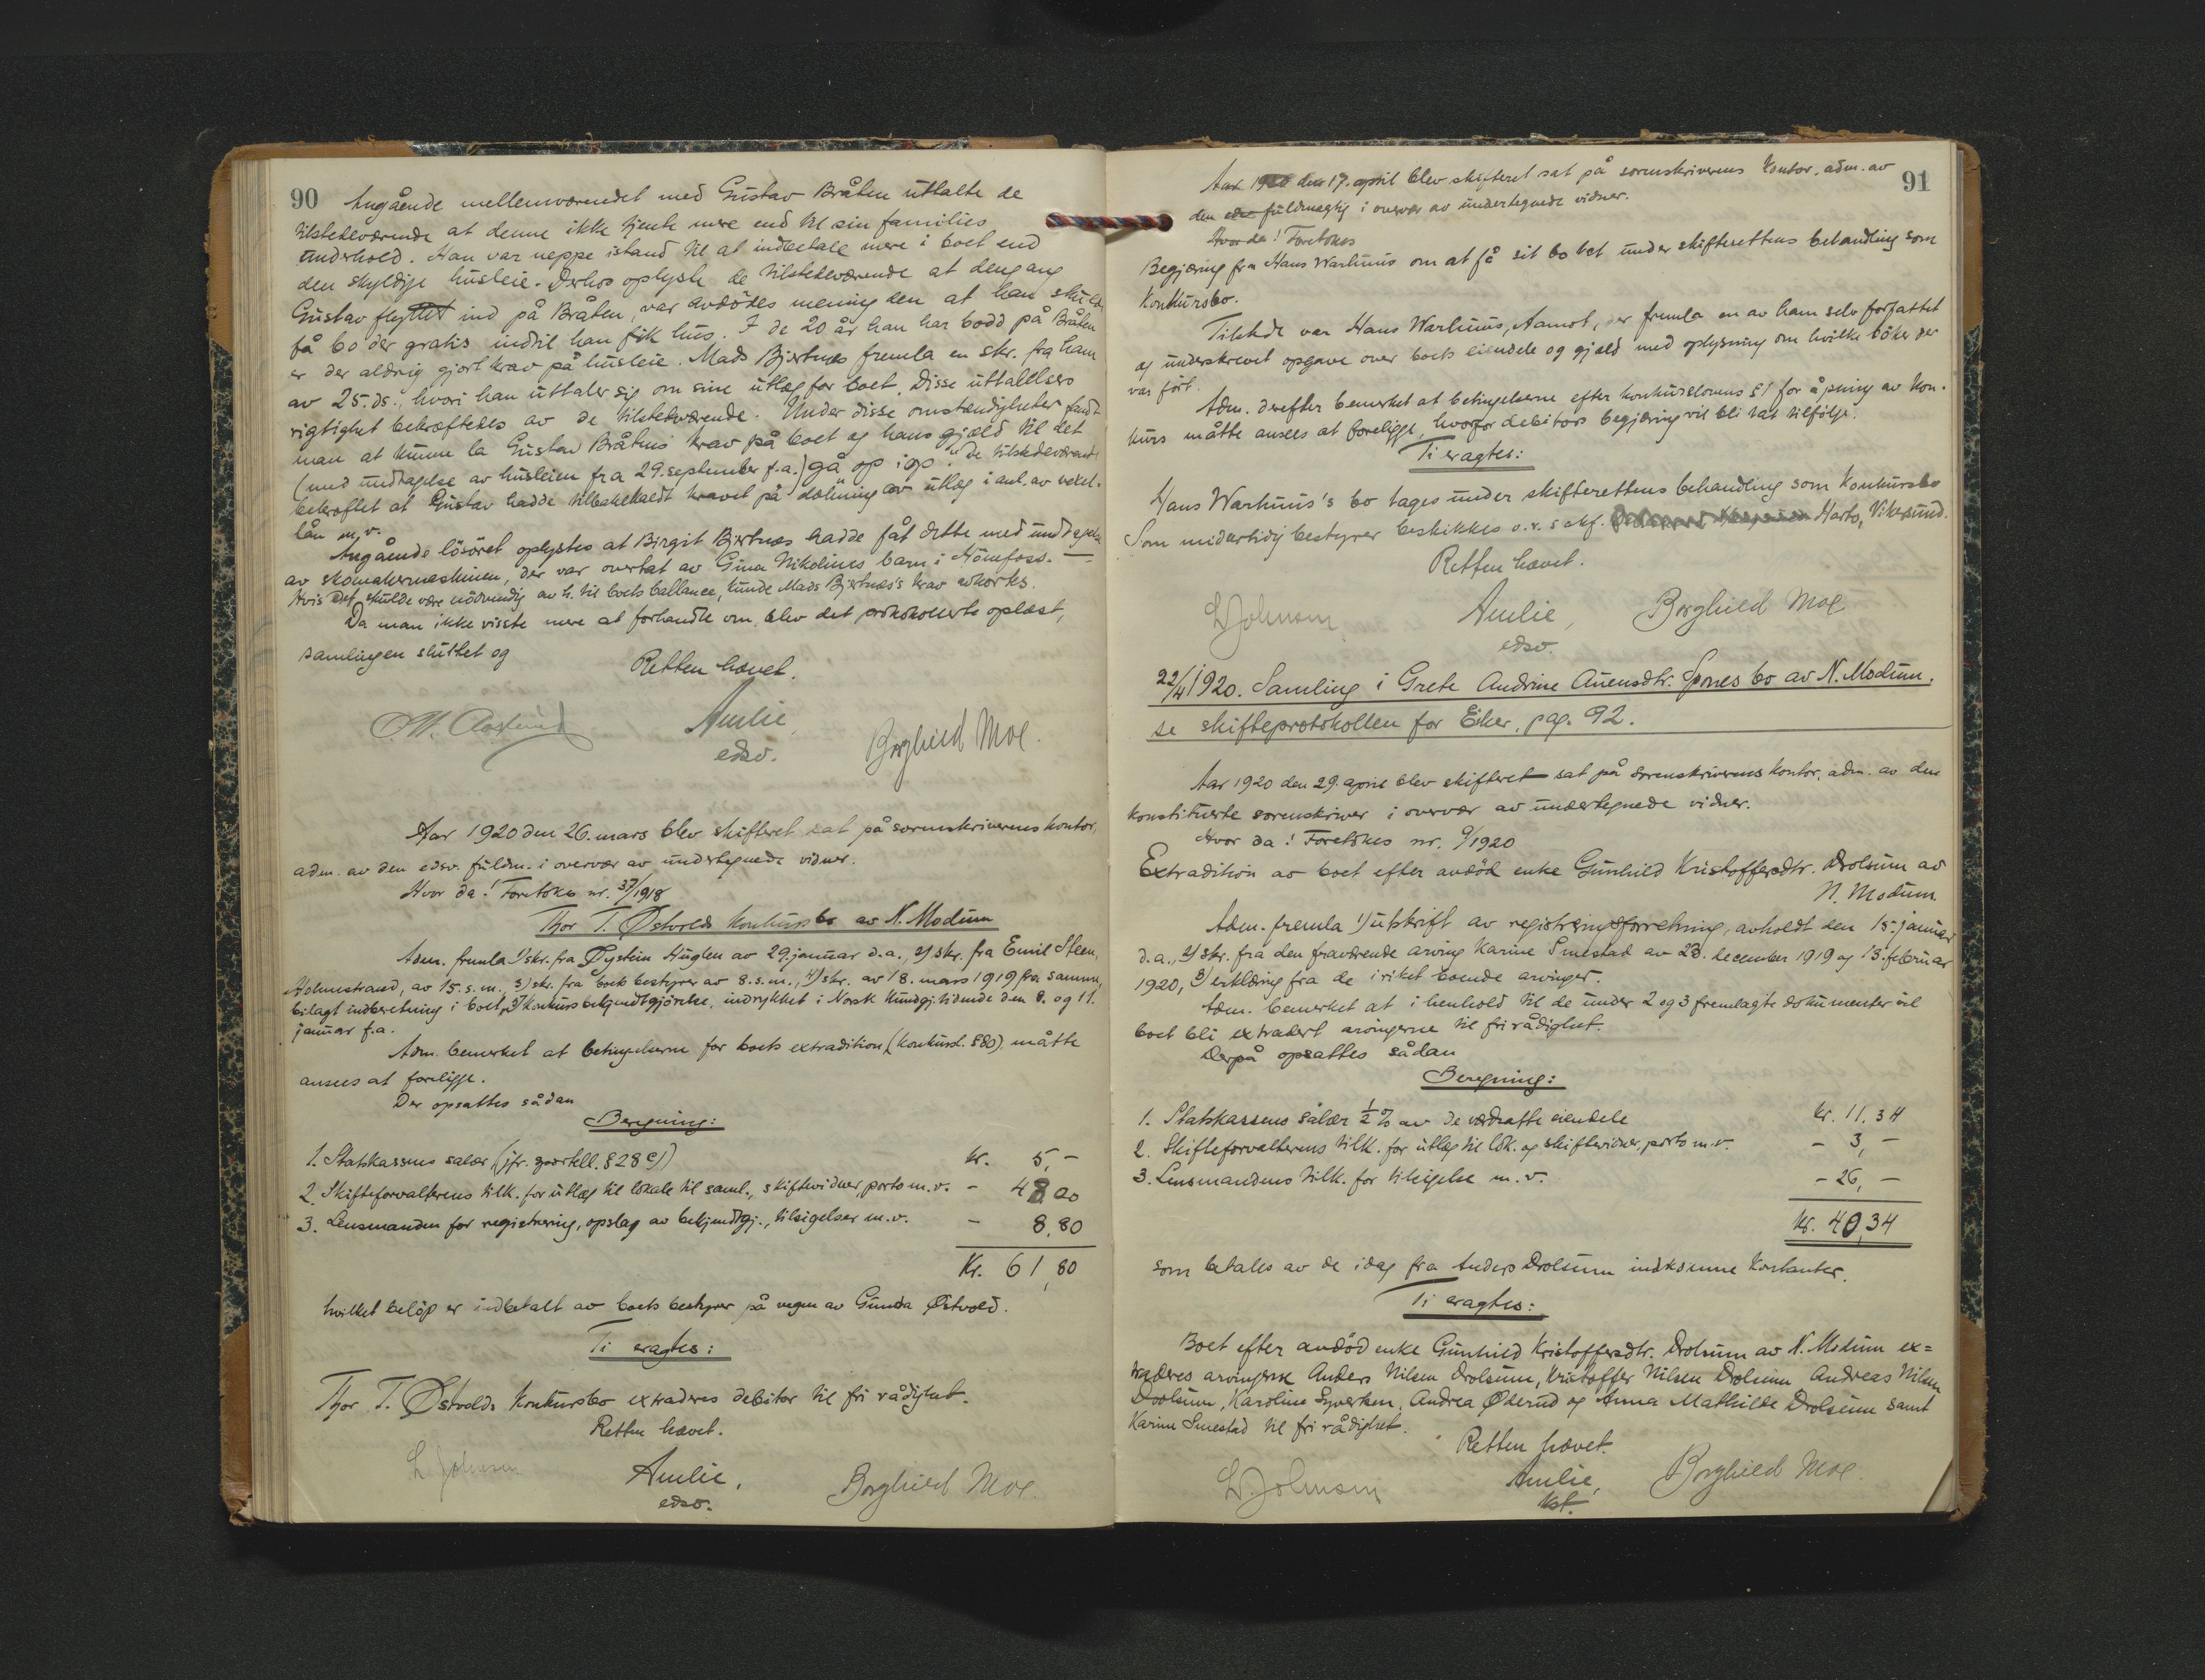 90
Angående mellemværendet med Gustav Bråten uttalte de
tilstedeværende at denne ikke tjente mere end til sin families
underhold. Han var neppe istand til at indbetale mere i boet end
den skyldige husleie. Derhos oplyste de tilstedeværende at dengang
Gustav flyttet ind på Bråten, var avdödes mening den at han skulde
få bo der gratis indtil han fik hus. I de 20 år han har bodd på Bråten
er der aldrig gjort krav på husleie. Mads Bjertnes fremla en skr. fra ham
av 25. ds., hvori han uttaler sig om sine utlæg for boet. Disse uttalelsers
rigtighet bekræftedes av de tilstedeværende. Under disse omstændigheter fandt
man at kunne la Gustav Bråtens krav på boet og hans gjæld til det
(med undtagelse av husleien fra 29. september f.a.) gå op i op. De tilstedeværende
bekræftet at Gustav hadde tilbakekaldt kravet på dækning av utlæg i anl. av veksel-
lån m.v.
Angående lösöret oplystes at Birgit Bjertnes hadde fåt dette med undtagelse
av skomakermaskinen, der var overtat av Gina Nikolines barn i Hönefoss. —
Hvis det skulde være nödvendig av h. til boets ballance, kunde Mads Bjertnæs's krav avkortes.
Da man ikke visste mere at forhandle om, blev det protokollerte oplæst,
samlingen sluttet og
Retten hævet.
Amlie,
edsv.
Borghild Moe.
Aar 1920 den 26. mars blev skifteret sat på sorenskriverens kontor,
adm. av den edsv. fuldm. i overvær av undertegnede vidner.
Hvor da! Foretokes nr. 37/1918
Thor T. Østvolds konkursbo av N. Modum
Adm. fremla 1) skr. fra Øystein Huglen av 29. januar d.a., 2) skr. fra Emil Steen,
Holmestrand, av 15. s.m., 3) skr. fra boets bestyrer av 8. s.m., 4) skr. av 18. mars 1919 fra samme,
bilagt indberetning i boet, 5) konkurs bekjendtgjörelse, indrykket i Norsk Kundgj. tidende den 8. og 11.
januar f.a.
Adm. bemerket at betingelserne for boets extradition, (konkursl. § 80) måtte
ansees at foreligge.
Der opsattes sådan
Beregning:
1. Statskassens salær (jfr. sportell. § 28 c)) kr. 5,-
2. Skifteforvalterens tilk. for utlæg til lokale til saml., skiftevidner, porto m.v. - 48,00
3. Lensmanden for registrering, opslag av bekjendtgj., tilsigelser m.v. - 8,80
Kr. 61,80
hvilket belöp er indbetalt av boets bestyrer på vegne av Gunda Østvold.
Ti eragtes:
Thor T. Østvolds konkursbo extraderes debitor til fri rådighet.
Retten hævet.
L Johnsen
Amlie,
edsv.
Borghild Moe.
91
Aar 1920 den 17. april blev skifteret sat på sorenskriverens kontor, adm. av
den edsv. fuldmægtig i overvær av undertegnede vidner.
Hvor da! Foretokes
Begjæring fra Hans Warhuus om at få sit bo tat under skifterettens behandling som
konkursbo.
Tilstede var Hans Warhuus, Aamot, der fremla en av ham selv forfattet
og underskrevet opgave over boets eiendele og gjæld med oplysning om hvilke böker der
var fört.
Adm. derefter bemerket at betingelserne efter konkurslovens § 1 for åpning av kon-
kurs måtte ansees at foreligge, hvorfor debitors begjæring vil bli tat tilfölge.
Ti eragtes:
Hans Warhuus's bo tages under skifterettens behandling som konkursbo
Som midlertidig bestyrer beskikkes o.r. sakf. Harto, Vikesund.
Retten hævet.
L Johnsen
Amlie,
edsv.
Borghild Moe
22/4 1920. Samling i Grete Andrine Auensdtr. Spones bo av N. Modum.
se skifteprotokollen for Eiker, pag. 92.
Aar 1920 den 29. april blev skifteret sat på sorenskriverens kontor, adm. av den
konstituerte sorenskriver i overvær av undertegnede vidner.
Hvor da! Foretokes nr. 9/1920
Extradition av boet efter avdöd enke Gunhild Kristoffersdtr. Drolsum av
N. Modum.
Adm. fremla 1) utskrift av registreringsforretning, avholdt den 15. januar
d.a., 2) skr. fra den fraværende arving Karine Smestad av 23. december 1919 og 13. februar
1920, 3) erklæring fra de i riket boende arvinger.
Adm. bemerket at i henhold til de under 2 og 3 fremlagte dokumenter vil
boet bli extradert arvingerne til fri rådighet.
Derpå opsattes sådan
Beregning:
1. Statskassens salær ½ % av de værdsatte eiendele kr. 11,34
2. Skifteforvalterens tilk. for utlæg til lok. og skiftevidner, porto m.v. - 3,-
3. Lensmandens tilk. for tilsigelse m.v. - 26,-
kr. 40,34
som betales av de idag fra Anders Drolsum indkomne kontanter.
Ti eragtes:
Boet efter avdöd enke Gunhild Kristoffersdtr. Drolsum av N. Modum ex=
traderes arvingerne Anders Nilsen Drolsum, Kristoffer Nilsen Drolsum Andreas Nilsen
Drolsum, Karoline Syverken, Andrea Øderud og Anna Mathilde Drolsum samt
Karine Smestad til fri rådighet.
Retten hævet.
L. Johnsen
Amlie,
kst.
Borghild Moe.